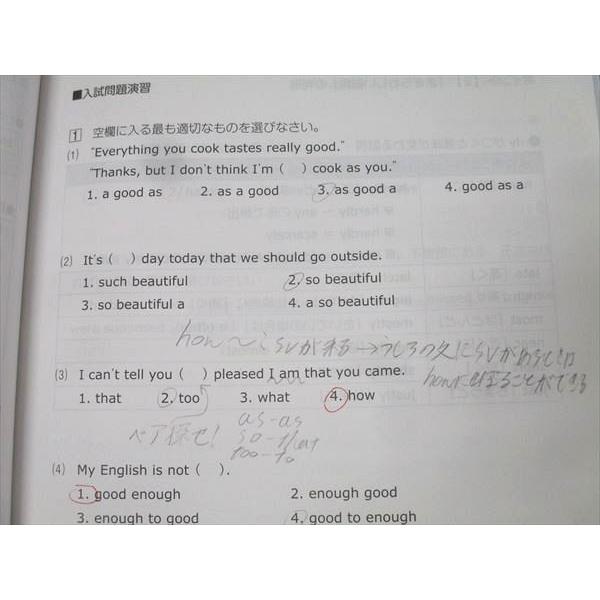 ■入試問題演習
1 空欄に入る最も適切なものを選びなさい。
(1) "Everything you cook tastes really good."
"Thanks, but I don't think I'm ( ) cook as you."
1. a good as 2. as a good 3. as good a 4. good as a
(2) It's ( ) day today that we should go outside.
1. such beautiful 2. so beautiful
3. so beautiful a 4. a so beautiful
how～はSVが来る→うしろの文にSVがあるで
(3) I can't tell you ( ) pleased I am that you came.
1. that 2. too 3. what 4. how
as-as
ペア探せ! so-that
too-to
(4) My English is not ( ).
1. good enough 2. enough good
3. enough to good 4. good to enough